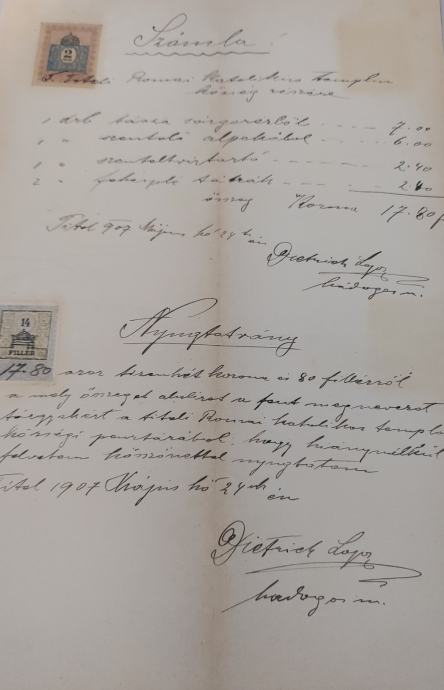 Számla!
2
A Titeli Romai Katolikus templom
község részére
1 drb tácza sárgarézből 7.00
1 " szentelő alpakából 6.00
1 " szenteltvíztartó 2.40
2 " fekete táblák 2.40
összeg Korona 17.80 f
Titel 907 Május hó 24 én
Dietrich Lajos
bádogos m.
Nyugtatvány
14
FILLÉR
17.80 azaz tizenhét korona és 80 fillérről
a mely összeget alulirott a fent megnevezett
tárgyakért a titeli Romai katolikus templom
községi pénztárából hogy hiánynélkül
felvettem köszönettel nyugtatom
Titel 1907 Május hó 24 én
Dietrich Lajos
bádogos m.